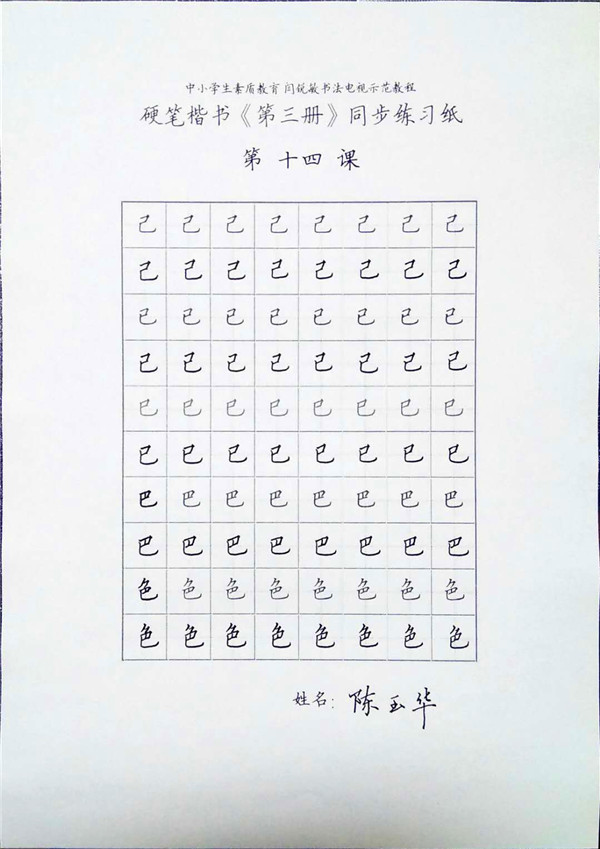 中小学生素质教育 闫锐敏书法电视示范教程
硬笔楷书《第三册》同步练习纸
第 十四 课
己 己 己 己 己 己 己 己
己 己 己 己 己 己 己 己
已 已 已 已 已 已 已 已
已 已 已 已 已 已 已 已
巳 巳 巳 巳 巳 巳 巳 巳
巳 巳 巳 巳 巳 巳 巳 巳
巴 巴 巴 巴 巴 巴 巴 巴
巴 巴 巴 巴 巴 巴 巴 巴
色 色 色 色 色 色 色 色
色 色 色 色 色 色 色 色
姓名: 陈玉华